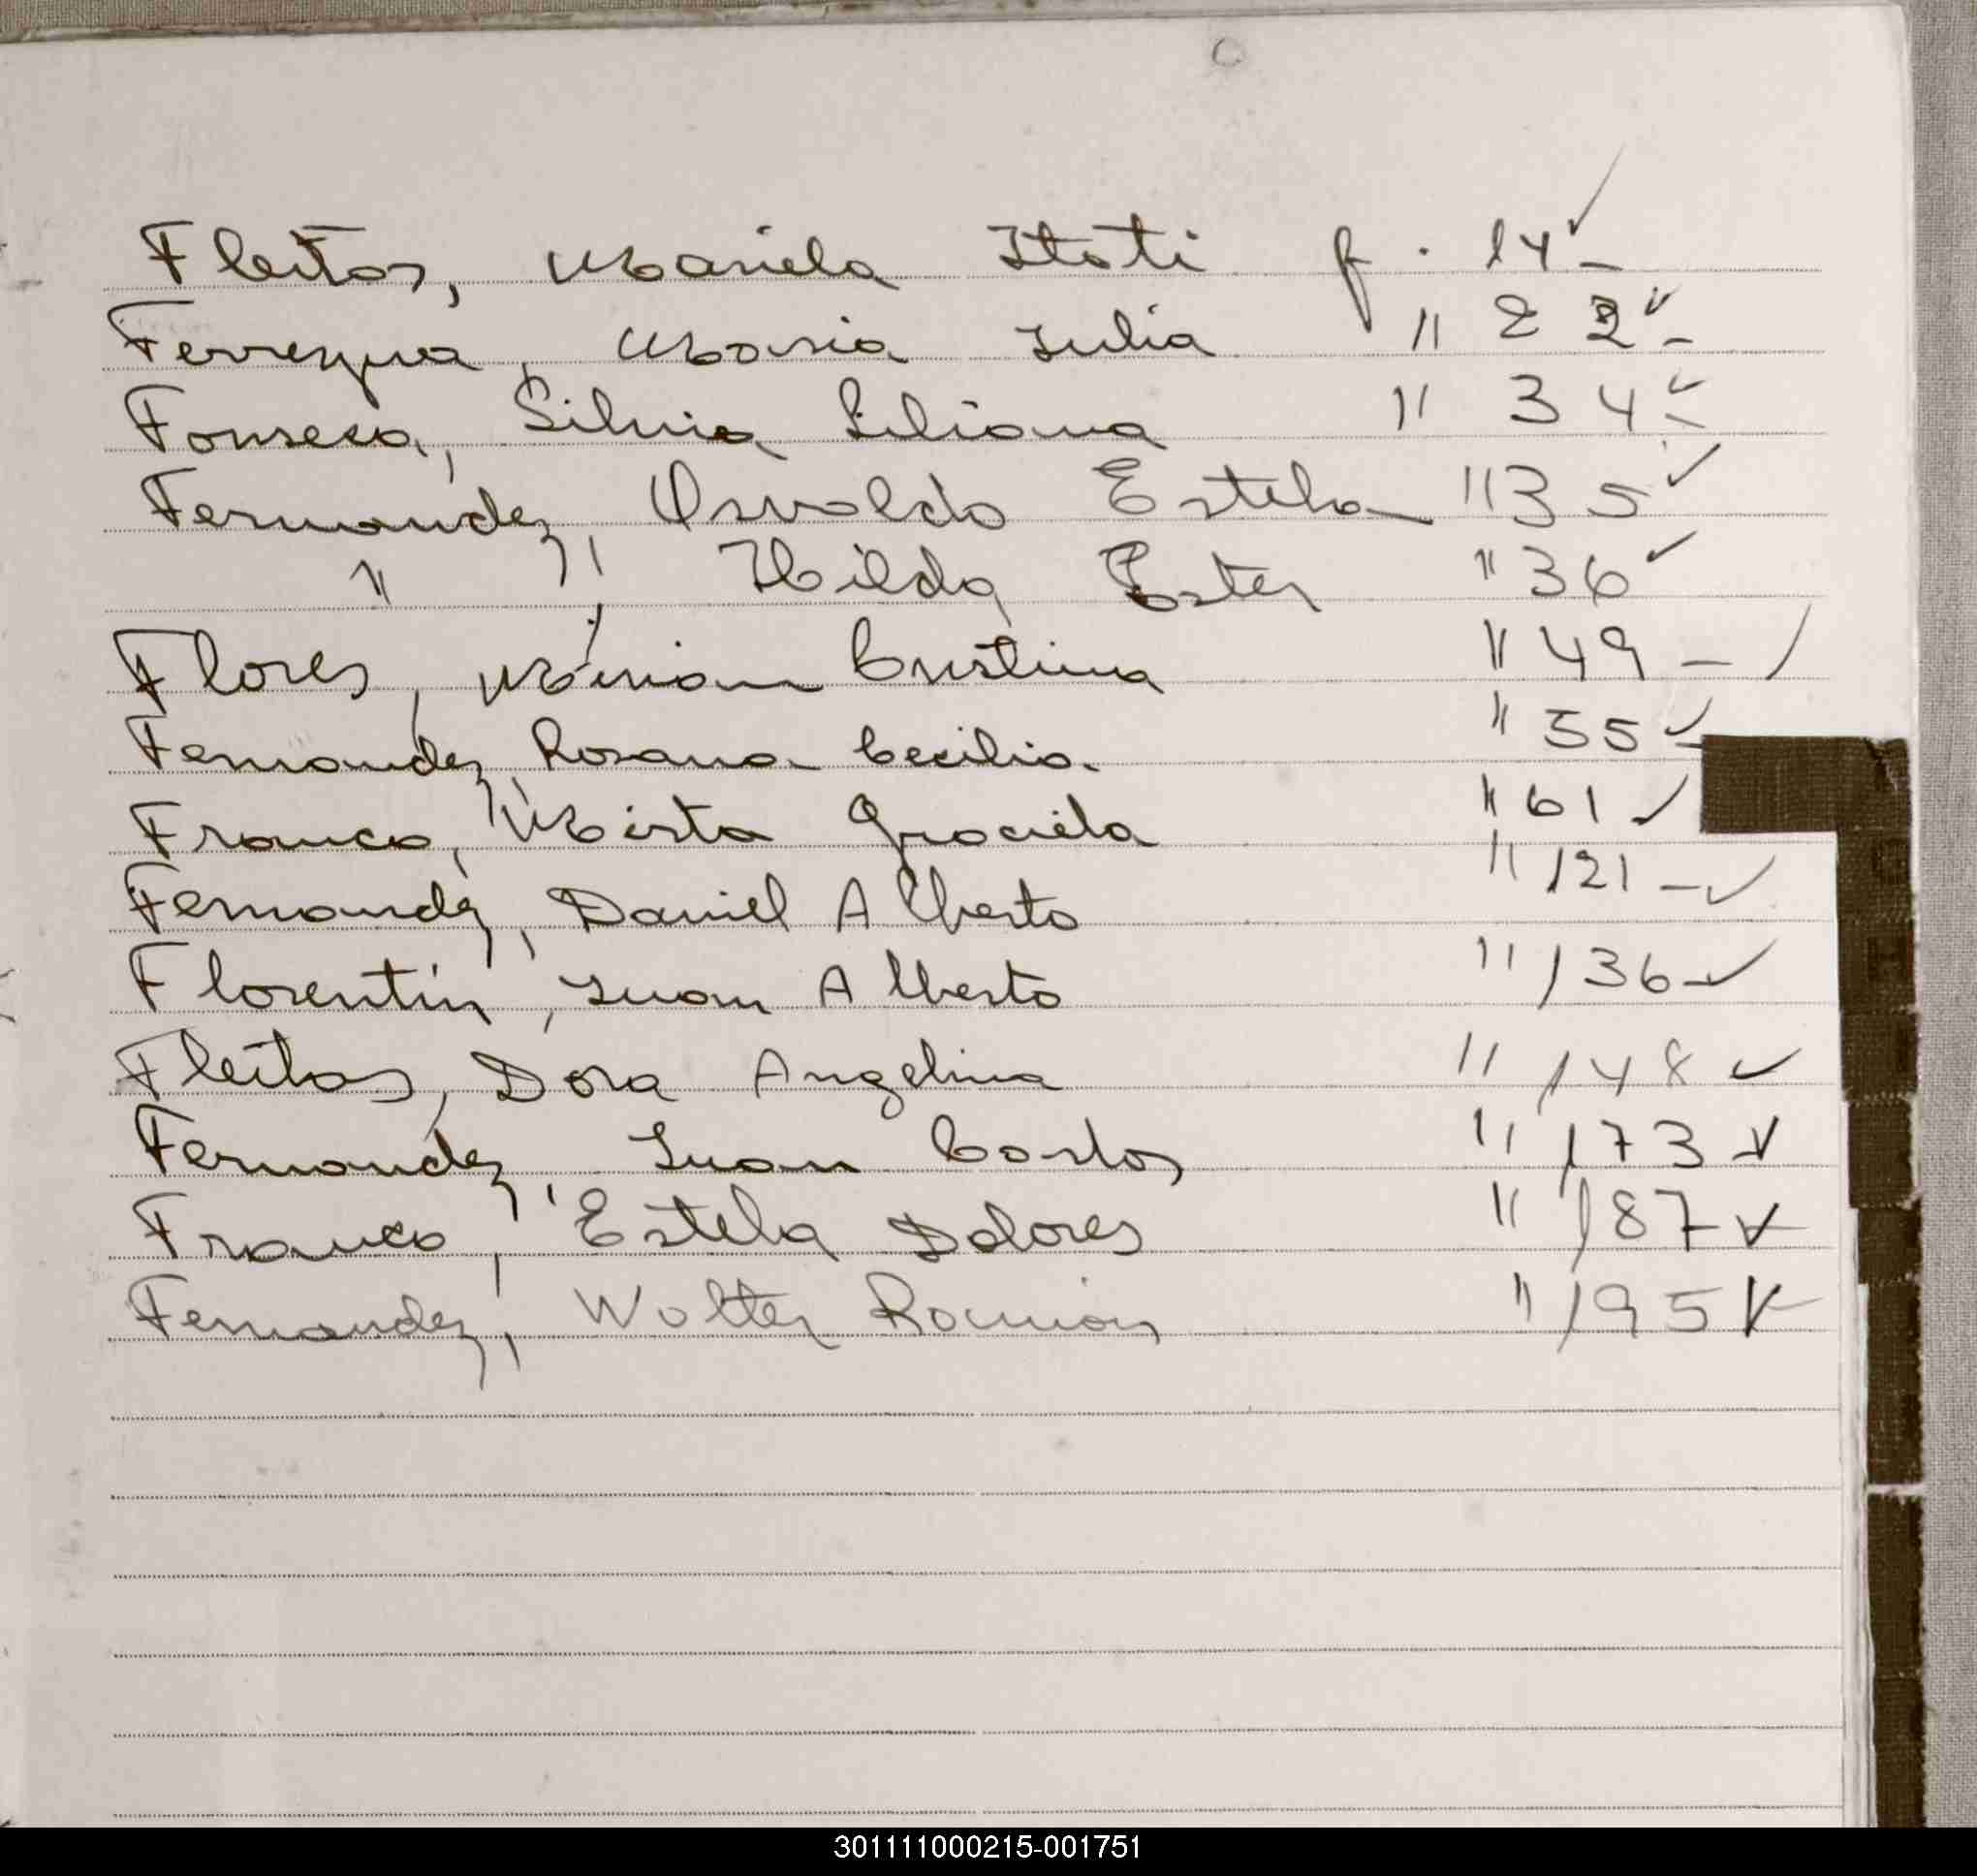 Fleitas, Mariela Itati f. 14 ✓ –
Ferreyra, Maria Julia " 22 ✓ –
Fonseca, Silvia Liliana " 34 ✓ –
Fernandez, Osvaldo Esteban " 35 ✓
" , Hilda Ester " 36 ✓
Flores, Mirian Cristina " 49 – ✓
Fernandez, Rosana Cecilia. " 55 ✓ –
Franco, Mirta Graciela " 61 ✓
Fernandez, Daniel Alberto " 121 – ✓
Florentín, Juan Alberto " 136 ✓
Fleitas, Dora Angelina " 148 ✓
Fernandez, Juan Carlos " 173 ✓
Franco, Estela Dolores " 187 ✓
Fernandez, Walter Ramón " 195 ✓
301111000215-001751